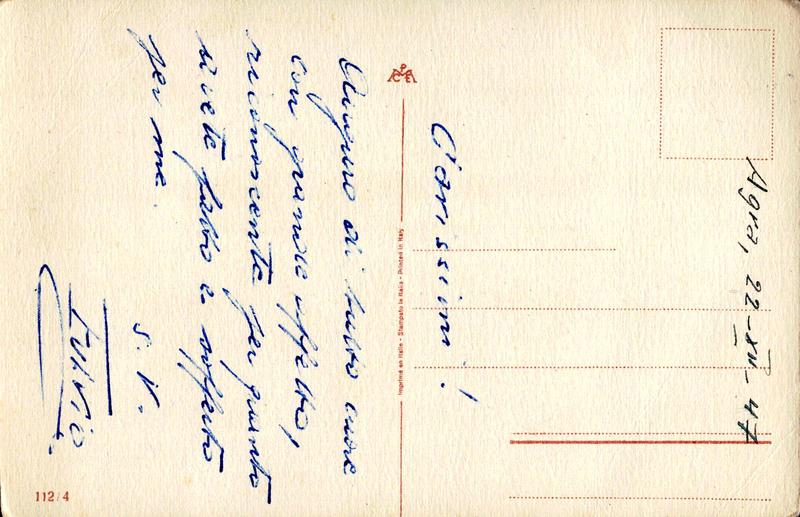 Agra, 22-XII-47
Carissimi!
Auguro di tutto cuore
con grande affetto,
riconoscente per quanto
avete fatto e sofferto
per me.
Imprimé en Italie - Stampato in Italia - Printed in Italy
112/4